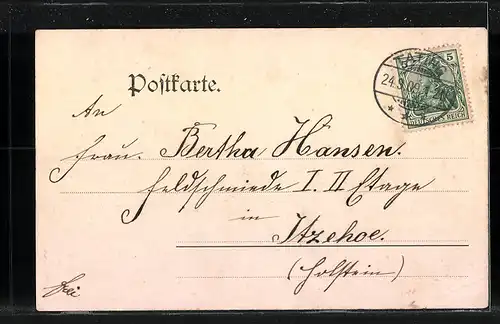 Postkarte.
5
DEUTSCHES REICH
An
Frau. Bertha Hansen.
Feldschmiede I. II Etage
in
Itzehoe.
(Holstein)
frei